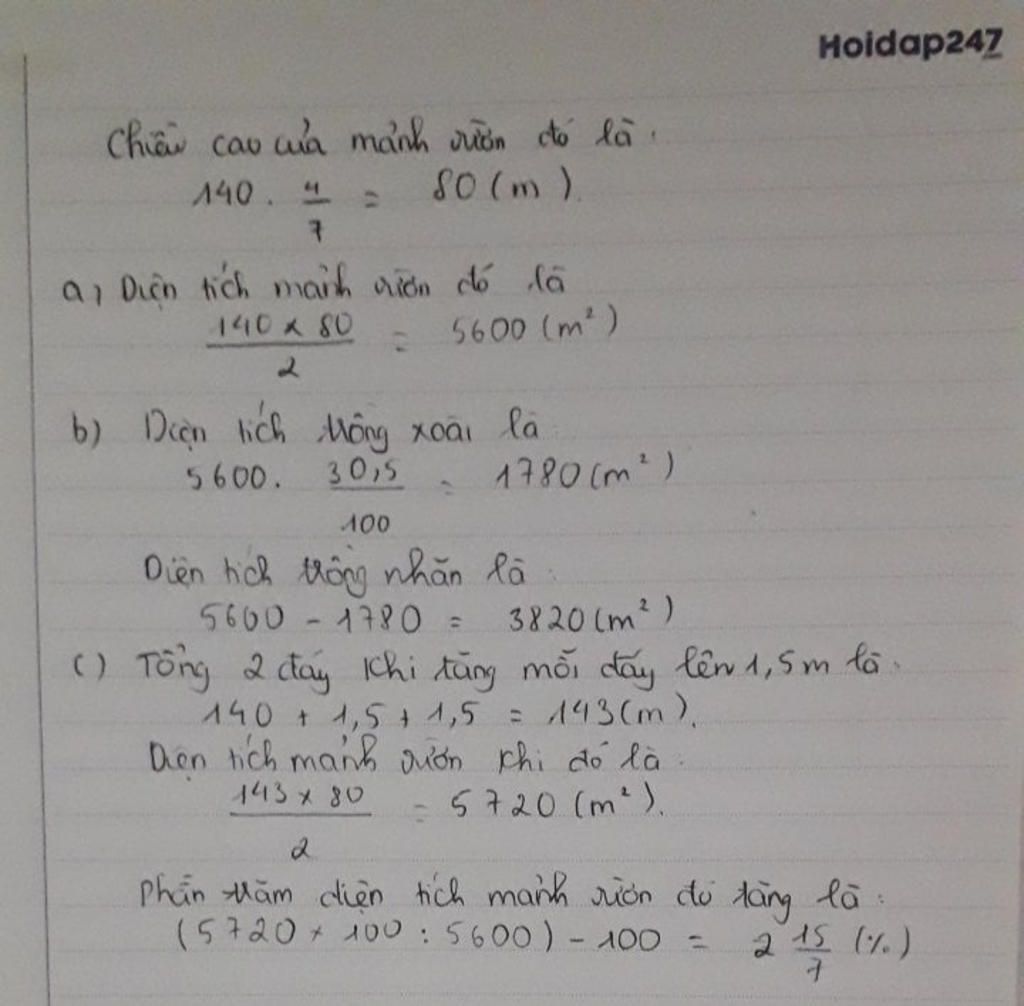 Hoidap247
Chiều cao của mảnh vườn đó là:
140 . 4/7 = 80 (m).
a, Diện tích mảnh vườn đó là
140 x 80 / 2 = 5600 (m²)
b) Diện tích trồng xoài là
5600. 30,5 / 100 = 1780 (m²)
Diện tích trồng nhãn là:
5600 - 1780 = 3820 (m²)
c) Tổng 2 đáy khi tăng mỗi đáy lên 1,5m là.
140 + 1,5 + 1,5 = 143 (m).
Diện tích mảnh vườn khi đó là:
143 x 80 / 2 = 5720 (m²).
Phần trăm diện tích mảnh vườn đó tăng là:
(5720 x 100 : 5600) - 100 = 2 15/7 (%)